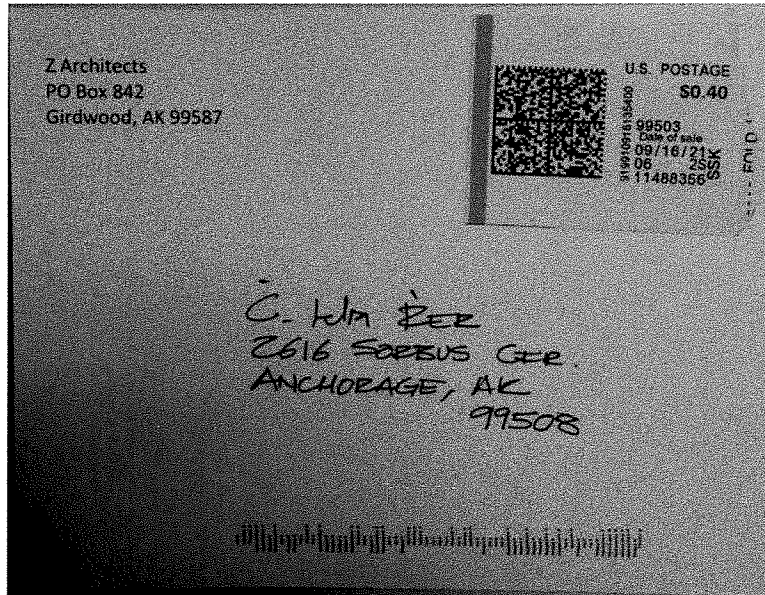 Z Architects
PO Box 842
Girdwood, AK 99587
U.S. POSTAGE
$0.40
99503
Date of sale
09/16/21
06 2S
11488356
SSK
FOLD
C. Wm
2616 SORBUS CIR.
ANCHORAGE, AK
99508